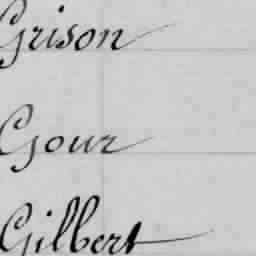 Grison
Gour
Gilbert